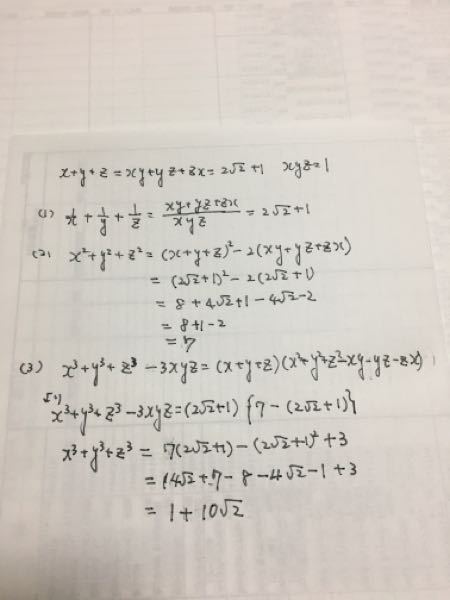 x+y+z=xy+yz+zx=2√2+1 xyz=1
(1) 1/x + 1/y + 1/z = (xy+yz+zx)/(xyz) = 2√2+1
(2) x²+y²+z² = (x+y+z)²-2(xy+yz+zx)
= (2√2+1)²-2(2√2+1)
= 8+4√2+1-4√2-2
= 8+1-2
= 7
(3) x³+y³+z³-3xyz=(x+y+z)(x²+y²+z²-xy-yz-zx)
より
x³+y³+z³-3xyz=(2√2+1){7-(2√2+1)}
x³+y³+z³ = 7(2√2+1)-(2√2+1)²+3
= 14√2+7-8-4√2-1+3
= 1+10√2